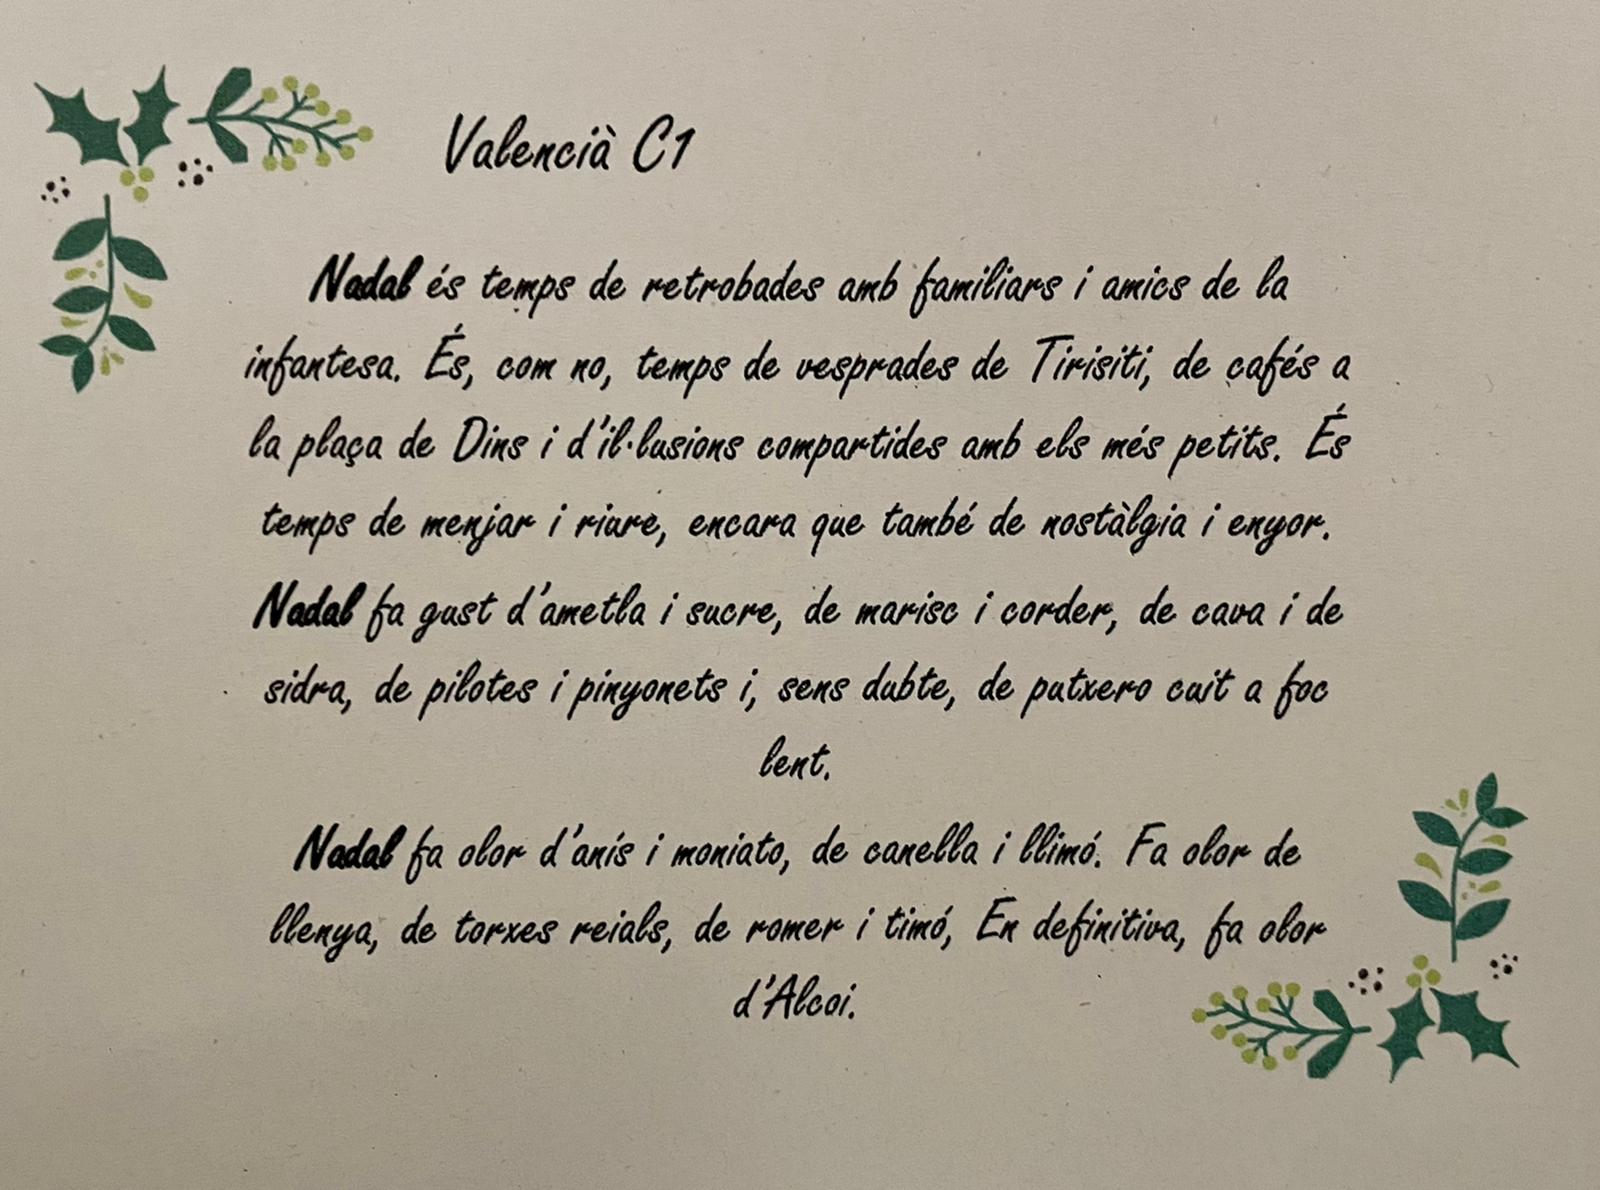 Valencià C1
Nadal és temps de retrobades amb familiars i amics de la
infantesa. És, com no, temps de vesprades de Tirisiti, de cafés a
la plaça de Dins i d'il·lusions compartides amb els més petits. És
temps de menjar i riure, encara que també de nostàlgia i enyor.
Nadal fa gust d'ametla i sucre, de marisc i corder, de cava i de
sidra, de pilotes i pinyonets i, sens dubte, de putxero cuit a foc
lent.
Nadal fa olor d'anís i moniato, de canella i llimó. Fa olor de
llenya, de torxes reials, de romer i timó, En definitiva, fa olor
d'Alcoi.